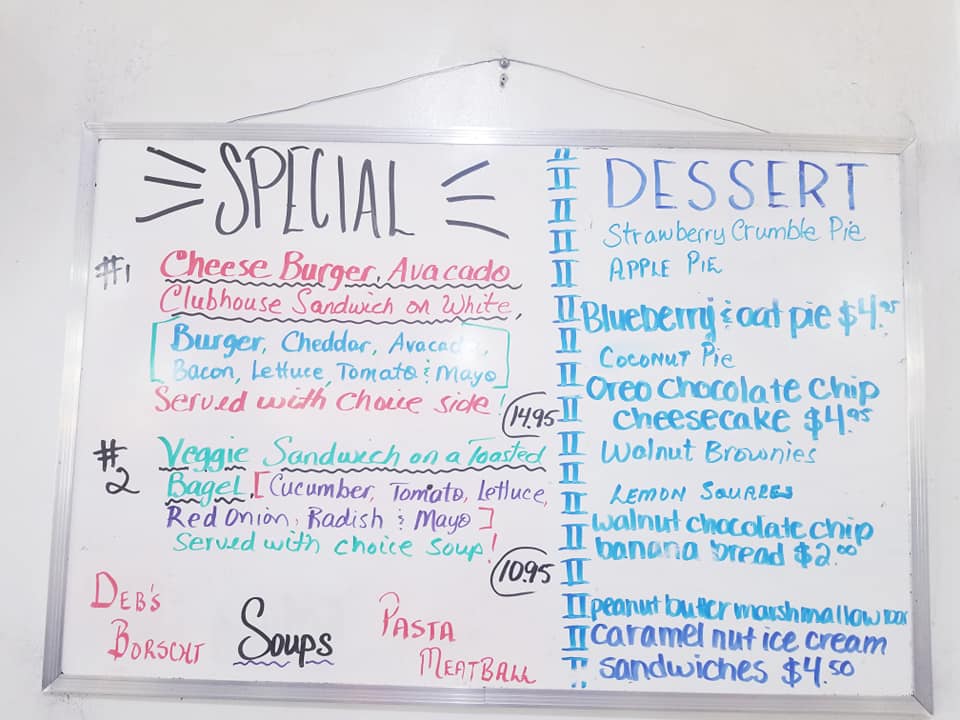 SPECIAL
#1 Cheese Burger, Avacado
Clubhouse Sandwich on White,
[Burger, Cheddar, Avacado,
Bacon, Lettuce, Tomato & Mayo]
Served with choice side!
14.95
#2 Veggie Sandwich on a Toasted
Bagel, [Cucumber, Tomato, Lettuce,
Red Onion, Radish & Mayo]
Served with choice soup!
10.95
Soups
DEB'S
BORSCHT
PASTA
MEATBALL
DESSERT
Strawberry Crumble Pie
APPLE PIE
Blueberry & oat pie $4.95
COCONUT PIE
Oreo chocolate chip
cheesecake $4.95
Walnut Brownies
LEMON SQUARES
walnut chocolate chip
banana bread $2.00
peanut butter marshmallow
caramel nut ice cream
sandwiches $4.50